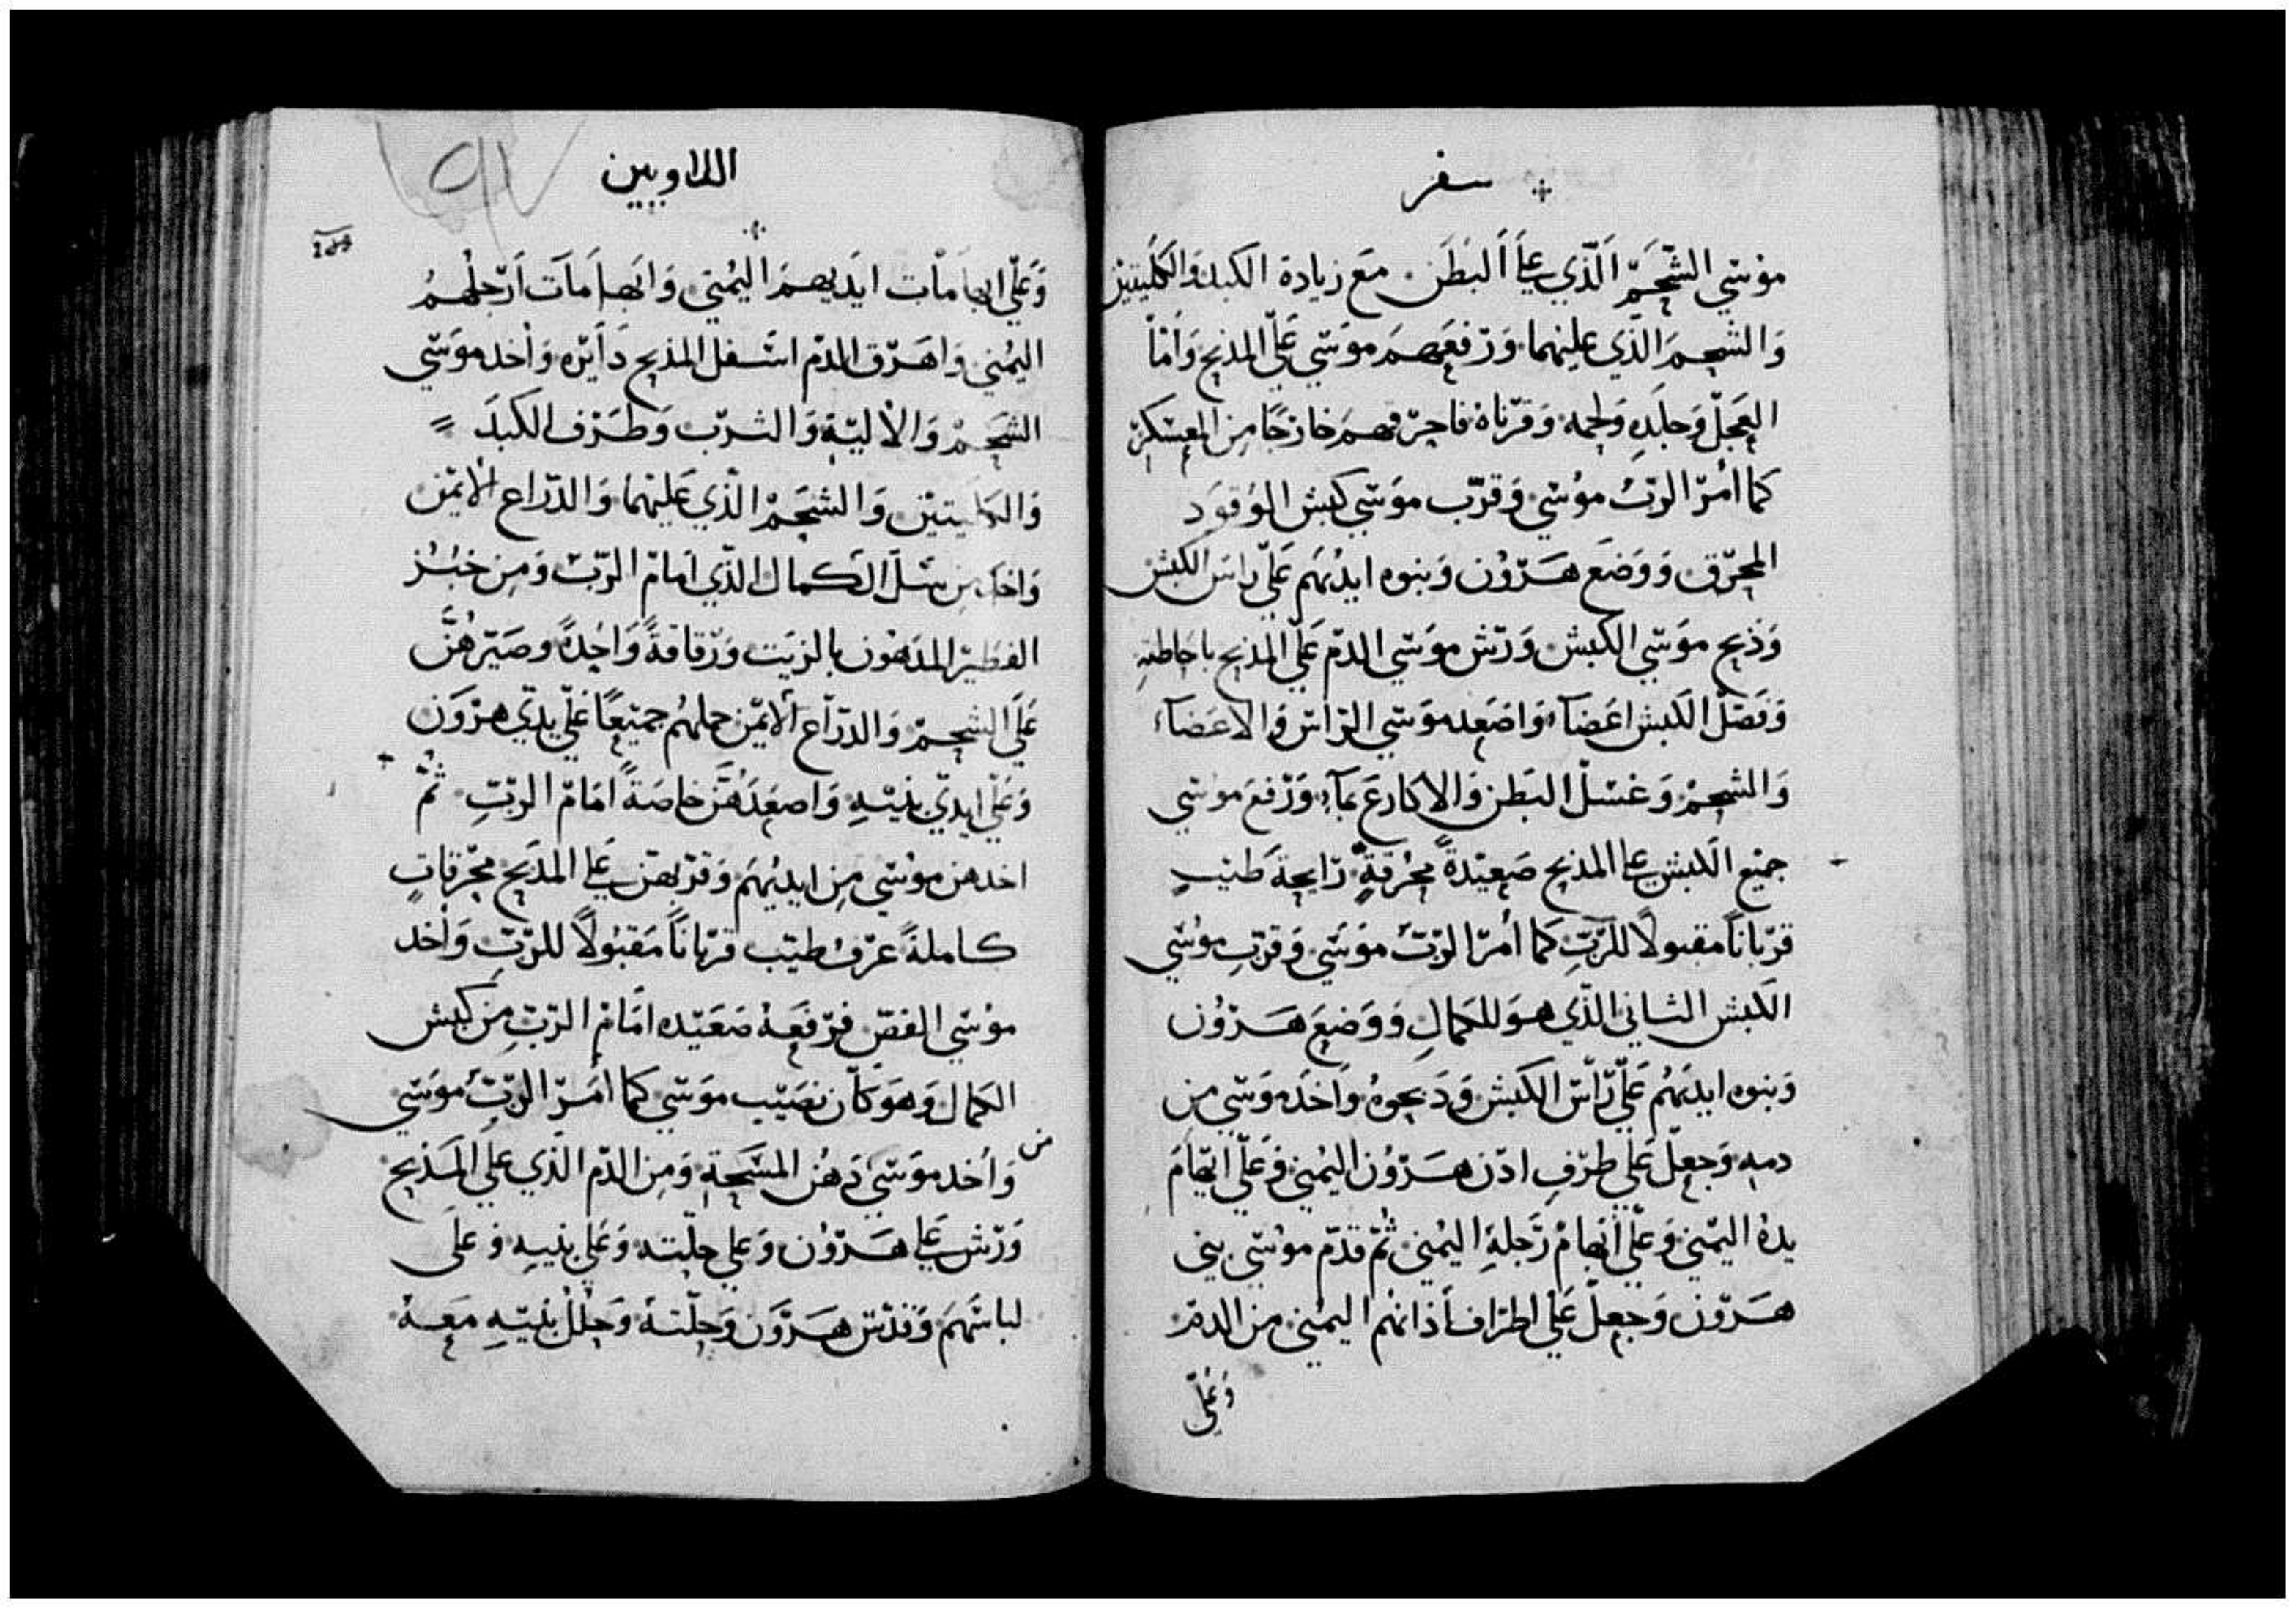 سفر
موسي الشحم الذي علي البطن مع زيادة الكبد والكليتين
والشحم الذي عليهما ورفعهم موسي علي المذبح واما
العجل وجلده ولحمه وقرناه فاحرقهم خارجا من المعسكر
كما امر الرب موسي وقرب موسي كبش الوقود
المحرق ووضع هرون وبنوه ايديهم علي راس الكبش
وذبح موسي الكبش ورش موسي الدم علي المذبح باحاطته
وفصل الكبش اعضآء واصعد موسي الراس والاعضآء
والشحم وغسل البطن والاكارع بمآء ورفع موسي
جميع الكبش علي المذبح صعيدة محرقة رايحة طيب
قربانا مقبولا للرب كما امر الرب موسي وقرب موسي
الكبش الثاني الذي هو للكمال ووضع هرون
وبنوه ايديهم علي راس الكبش ودبحوه واخد موسي من
دمه وجعل علي طرف ادن هرون اليمني وعلي ابهام
يده اليمني وعلي ابهام رجله اليمني ثم قدم موسي بني
هرون وجعل علي اطراف أذانهم اليمني من الدم
وعلي
اللاويين
وعلي ابهامات ايديهم اليمني وابهامات ارجلهم
اليمني واهرق الدم اسفل المذبح دأيره وأخد موسي
الشحم والألية والثرب وطرف الكبد
والكليتين والشحم الذي عليهما والدراع الأيمن
واخد من سل الكمال الذي امام الرب ومن خبز
الفطير المدهون بالزيت ورقاقة واحدة وصيرهن
علي الشحم والدراع الأيمن جملهم جميعا علي يدي هرون
وعلي ايدي بنيه واصعدهن خاصة امام الرب ثم
اخدهن موسي من ايديهم وقربهن علي المذبح محرقات
كاملة عرف طيب قربانا مقبولا للرب وأخد
موسي القص فرفعه صعيده امام الرب من كبش
الكمال وهو كان نصيب موسي كما امر الرب موسي
وأخد موسي من دهن المسحة ومن الدم الذي علي المذبح
ورش علي هرون وعلي حلته وعلي بنيه وعلي
لباسهم وقدس هرون وحلته وحلل بنيه معه